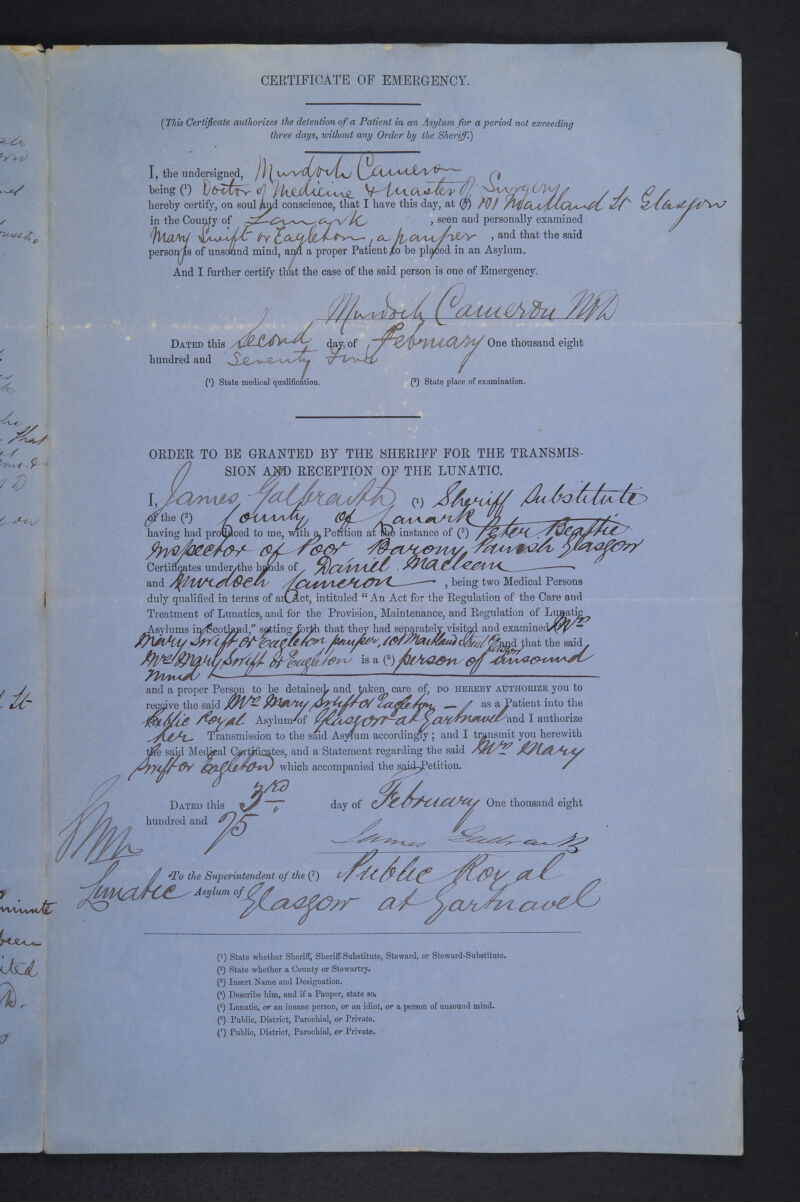 CERTIFICATE OF EMERGENCY.
(This Certificate authorizes the detention of a Patient in an Asylum for a period not exceeding
three days, without any Order by the Sheriff.)
I, the undersigned, Murdoch Cameron
being (¹) Doctor of Medicine & Master of Surgery
hereby certify, on soul and conscience, that I have this day, at (²) 101 Maitland St Glasgow
in the County of Lanark, seen and personally examined
Mary Swift or Eagleton, a pauper, and that the said
person is of unsound mind, and a proper Patient to be placed in an Asylum.
And I further certify that the case of the said person is one of Emergency.
Murdoch Cameron MD
DATED this Second day of February One thousand eight
hundred and Seventy Five
(¹) State medical qualification. (²) State place of examination.
ORDER TO BE GRANTED BY THE SHERIFF FOR THE TRANSMIS-
SION AND RECEPTION OF THE LUNATIC.
I, James Galbraith (¹) Sheriff Substitute
of the (²) County of Lanark
having had produced to me, with a Petition at the instance of (³) Peter Beattie
Inspector of Poor Barony Parish Glasgow
Certificates under the hands of Daniel Maclean
and Murdoch Cameron, being two Medical Persons
duly qualified in terms of an Act, intituled "An Act for the Regulation of the Care and
Treatment of Lunatics, and for the Provision, Maintenance, and Regulation of Lunatic
Asylums in Scotland," setting forth that they had separately visited and examined (⁴) Mrs
Mary Swift or Eagleton pauper, 101 Maitland Street Glasgow and that the said
Mrs Mary Swift or Eagleton is a (⁵) person of unsound
mind
and a proper Person to be detained and taken care of, DO HEREBY AUTHORIZE you to
receive the said Mrs Mary Swift or Eagleton — as a Patient into the
Public Royal Asylum of Glasgow at Gartnavel and I authorize
her Transmission to the said Asylum accordingly; and I transmit you herewith
the said Medical Certificates, and a Statement regarding the said Mrs Mary
Swift or Eagleton which accompanied the said Petition.
DATED this 3rd day of February One thousand eight
hundred and 75
James Galbraith
To the Superintendent of the (⁷) Public Royal
Lunatic Asylum of Glasgow at Gartnavel
(¹) State whether Sheriff, Sheriff-Substitute, Steward, or Steward-Substitute.
(²) State whether a County or Stewartry.
(³) Insert Name and Designation.
(⁴) Describe him, and if a Pauper, state so.
(⁵) Lunatic, or an insane person, or an idiot, or a person of unsound mind.
(⁶) Public, District, Parochial, or Private.
(⁷) Public, District, Parochial, or Private.